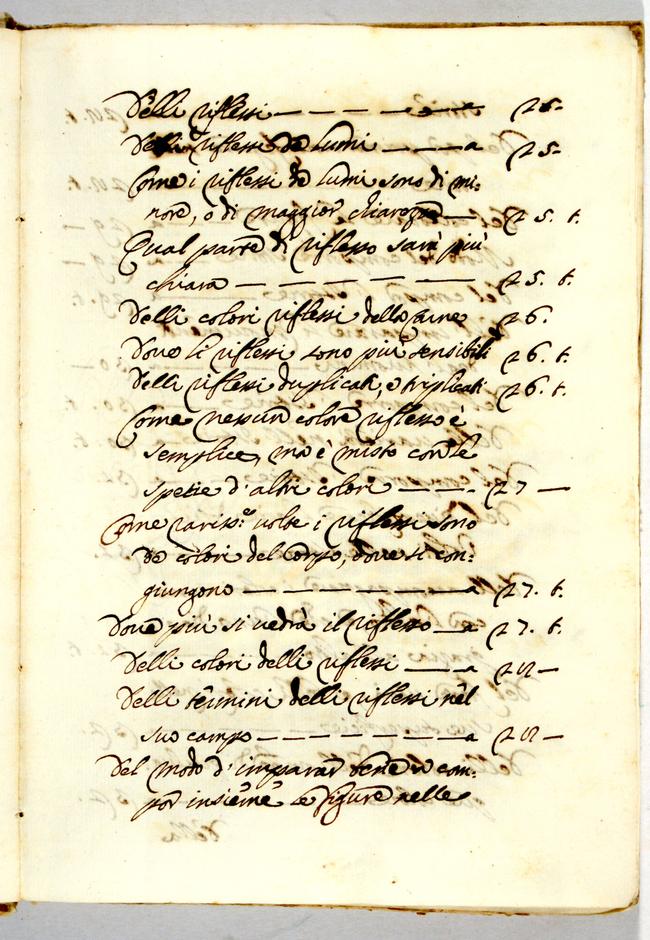 Delli riflessi — — — — — a 25
riflessi de lumi — — — a 25
Come i riflessi de lumi sono di mi:
nore, o di maggior chiarezza — 25. t.
Qual parte di riflesso sarà più
chiara — — — — — 25. t.
Delli colori riflessi della carne 26.
Dove li riflessi sono più sensibili 26. t.
Delli riflessi duplicati, e triplicati 26. t.
Come nessun colore riflesso è
semplice, ma è misto con le
spetie d'altri colori — — — 27 —
Come rariss.e volte i riflessi sono
de colori del corpo, dove si con:
giungono — — — — — a 27. t.
Dove più si vedrà il riflesso — a 27. t.
Delli colori delli riflessi — — a 28 —
Delli termini delli riflessi nel
suo campo — — — — — a 28 —
Del modo d'imparar bene a com:
por insieme le figure nelle